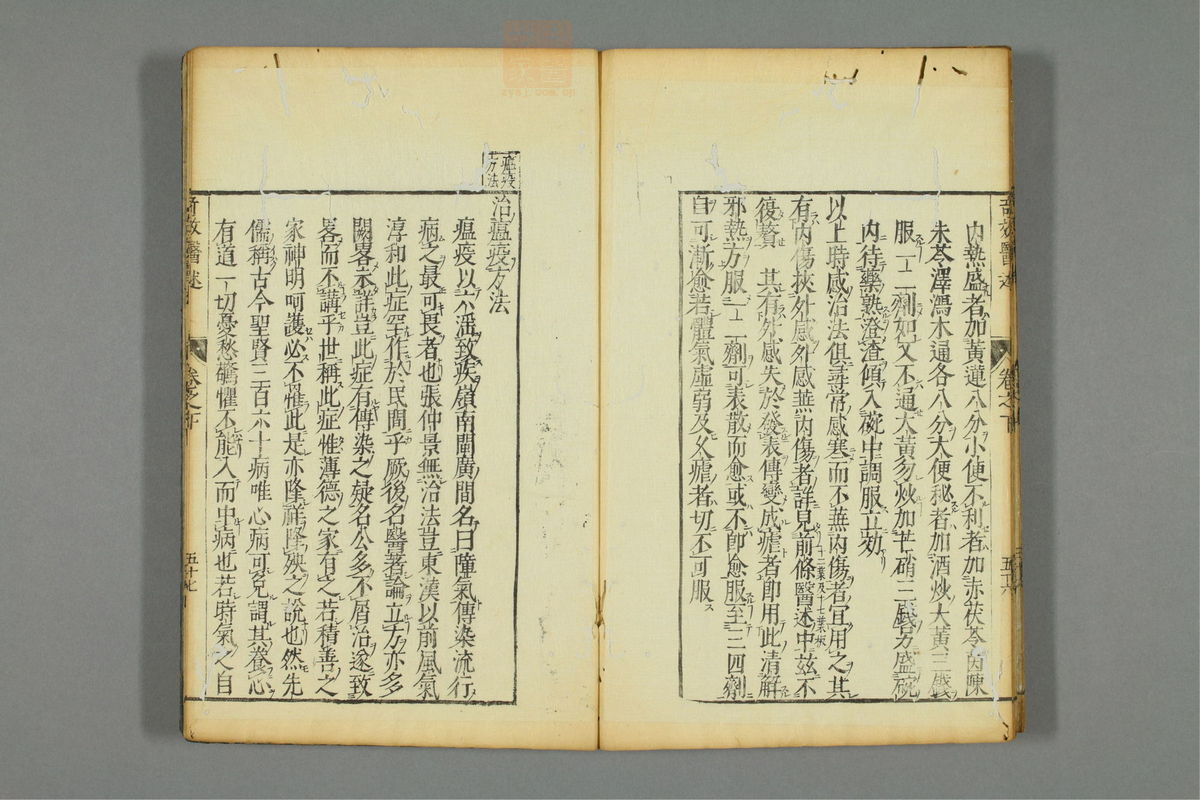 內熱盛者加黃連八分小便不利者加赤茯苓茵陳
木通各八分大便秘者加酒炒大黃三錢
服一二劑如又不通大黃勿炒加芒硝三錢另盛碗
內待藥熟澄渣傾入碗中調服立効
以上時感治法俱尋常感寒而不兼內傷者宜用之其
有內傷挾外感外感兼內傷者詳見前條醫述中茲不
復贅 其有外感失於發表傳變成瘧者即用此清解
邪熱方服一二劑可表散而愈或不卽愈服至三四劑
自可漸愈若體氣虛弱及久瘧者切不可服
奇效醫述
卷之下
五十六
瘟疫方法
治瘟疫方法
瘟疫以六淫致疾嶺南閩廣間名曰瘴氣傳染流行
病之最可畏者也張仲景無治法豈東漢以前風氣
淳和此症罕作於民間乎厥後名醫著論立方亦多
闕畧未詳豈此症有傳染之疑名公多不屑治遂致
畧而不講乎世稱此症惟薄德之家有之若積善之
家神明呵護必不罹此是亦隆祥降殃之說也然先
儒稱古今聖賢三百六十病唯心病可免謂其養心
有道一切憂愁驚懼不能入而中病也若時氣之自
奇效醫述
卷之下
五十七